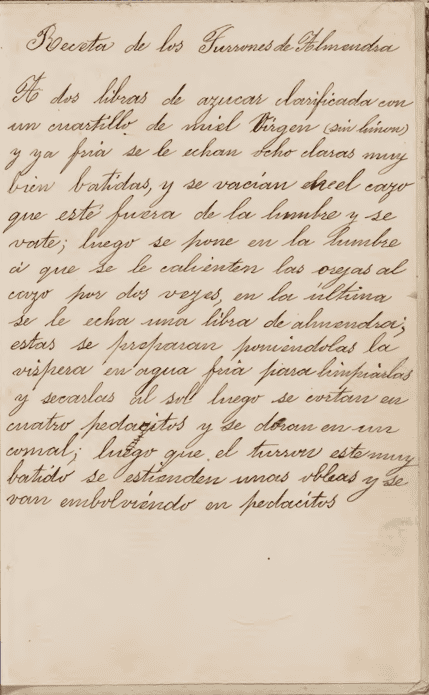 Receta de los Turrones de Almendra
A dos libras de azucar clarificada con
un cuartillo de miel Virgen (sin limon)
y ya fria se le echan ocho claras muy
bien batidas, y se vacían en el cazo
que esté fuera de la lumbre y se
vate; luego se pone en la lumbre
á que se le calienten las orejas al
cazo por dos vezes, en la última
se le echa una libra de almendra;
estas se preparan poniéndolas la
víspera en agua fria para limpiarlas
y secarlas al sol luego se cortan en
cuatro pedacitos y se doran en un
comal; luego que el turron este muy
batido se estienden unas obleas y se
van embolviéndo en pedacitos